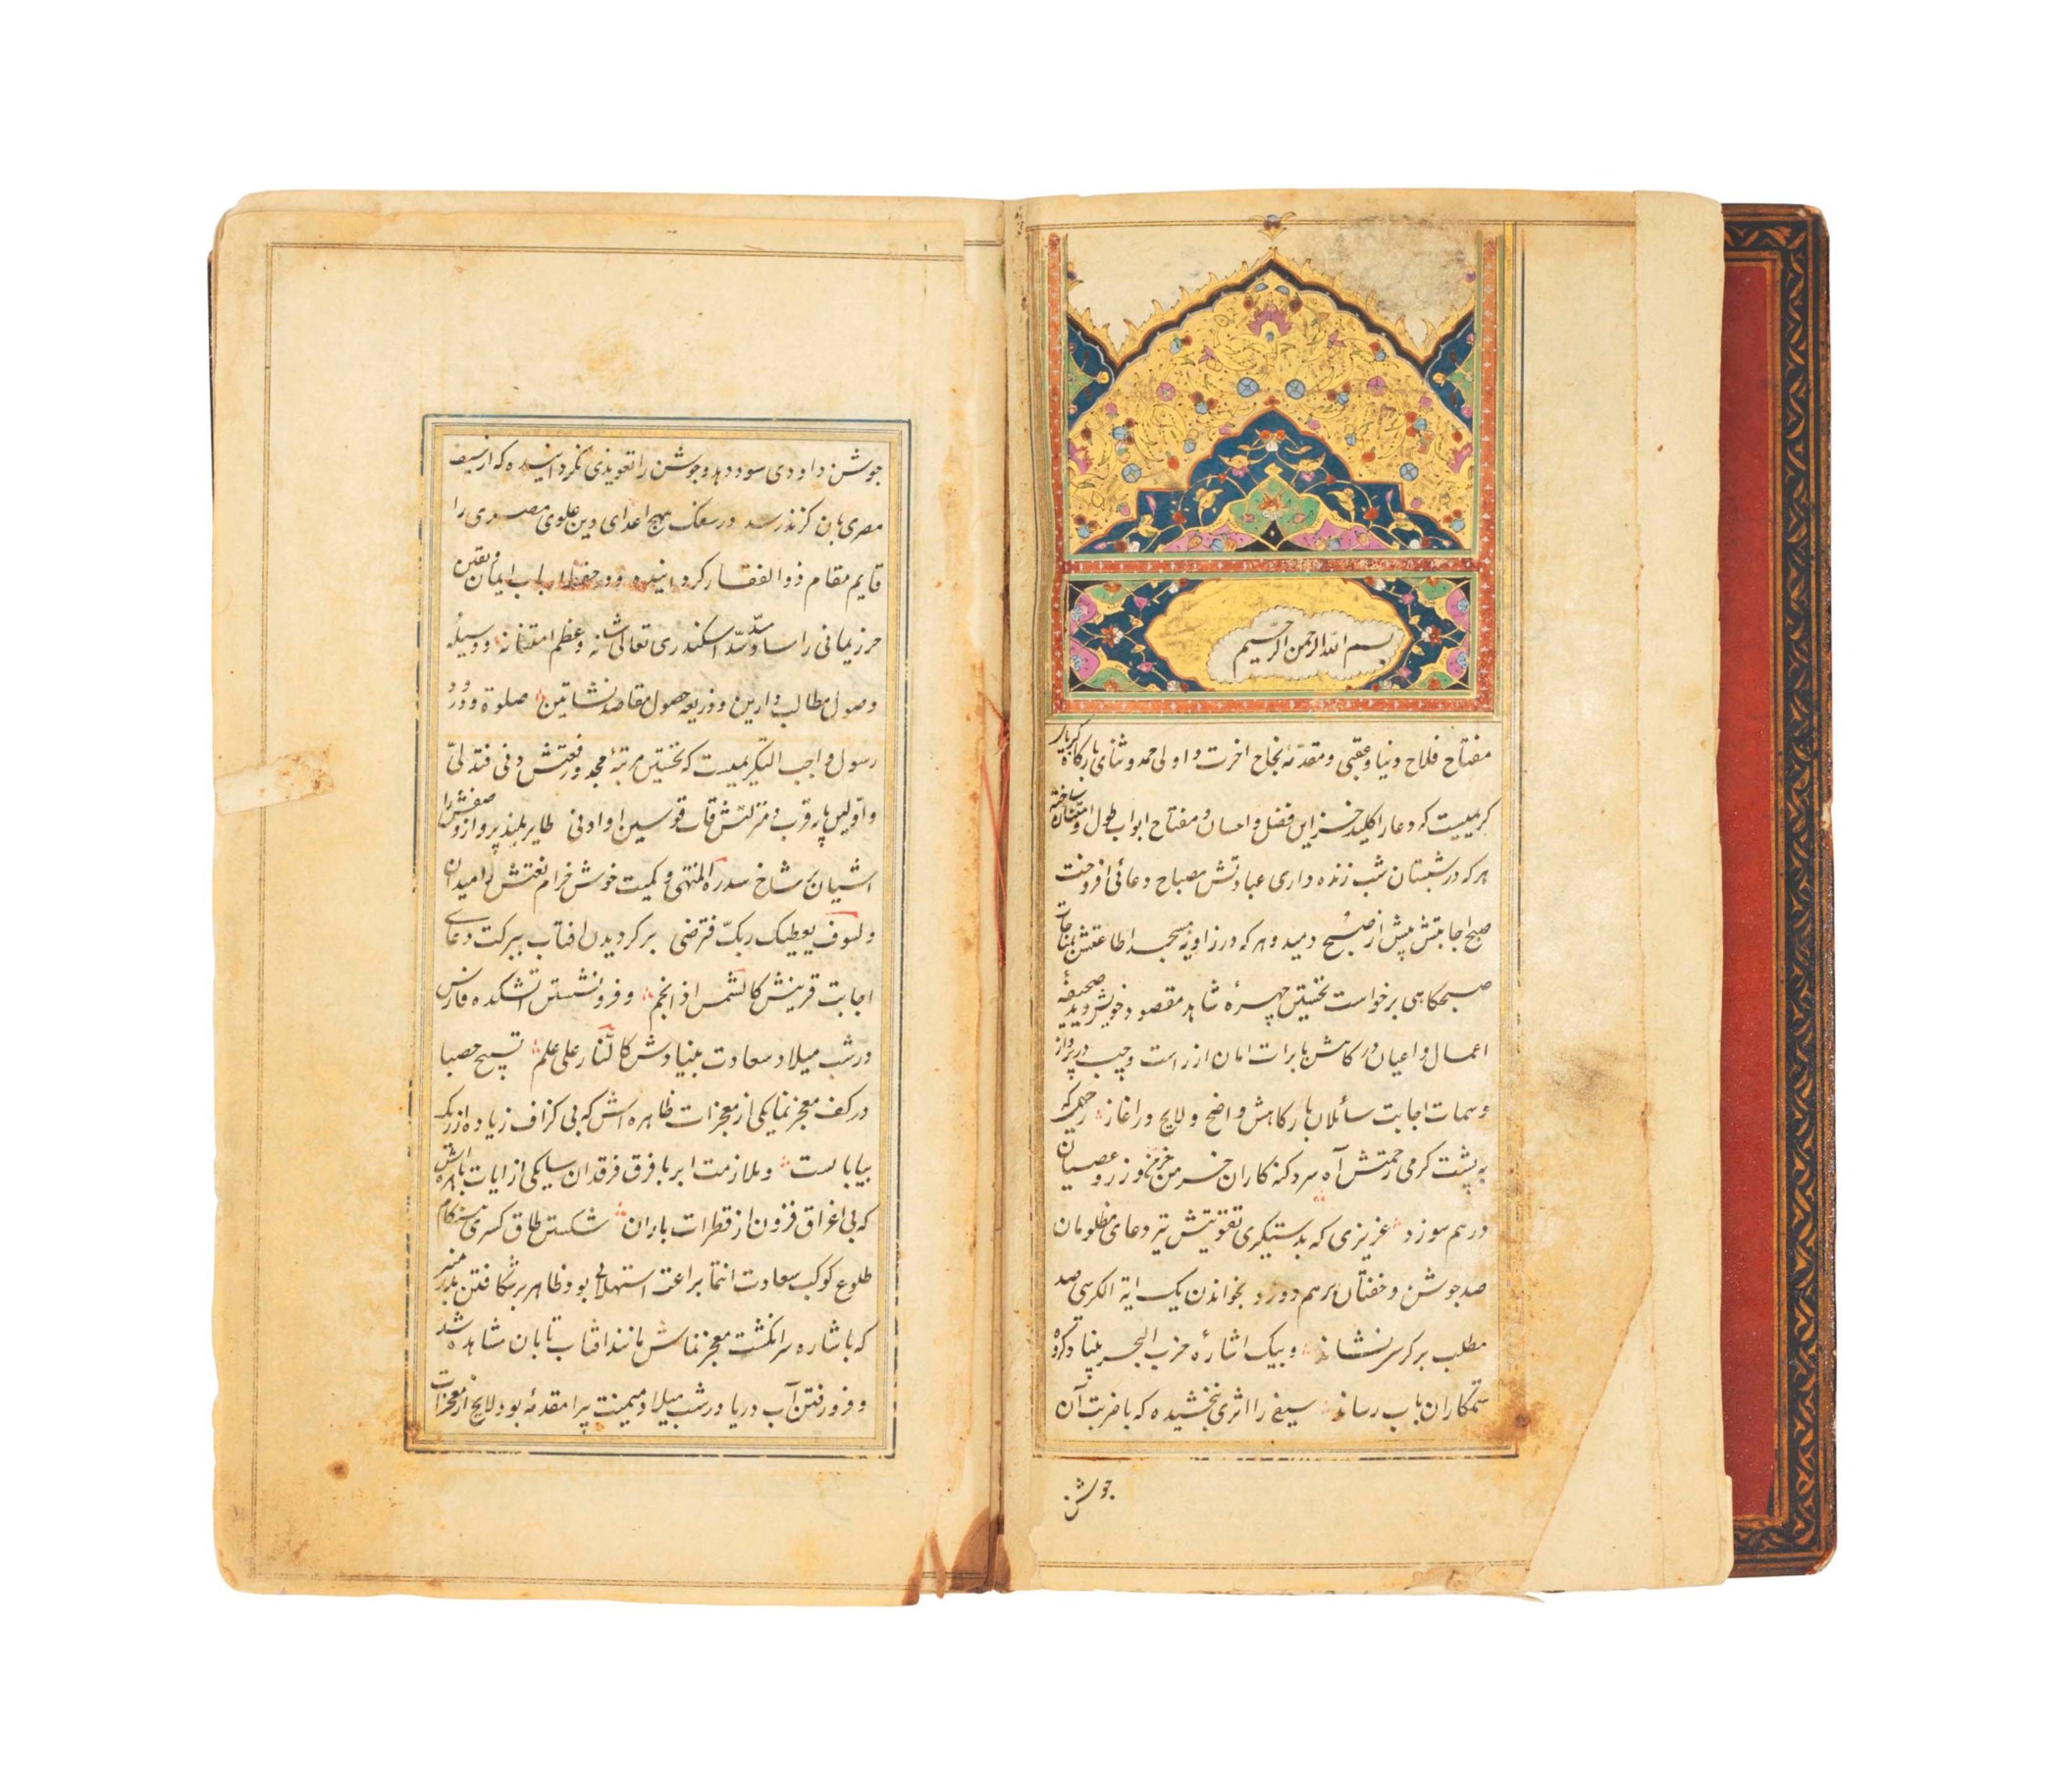 بسم الله الرحمن الرحیم
مفتاح فلاح دنیا و عقبی و مقدمهٔ نجاح اخرت و اولی حمد و ثنای بارکاه کبریاء
کریمیست که دعا را کلید خزاین فضل و احسان و مفتاح ابواب طول و امتنان ساخته
هر که در شبستان شب زنده داری عبادتش مصباح دعائی افروخت
صبح اجابتش پیش از صبح دمید و هر که در زاویهٔ مسجد اطاعتش بمناجات
صبحکاهی برخواست نخستین چهرهٔ شاهد مقصود خویش دید صحیفهٔ
اعمال داعیان درکاهش با برات امان از راست و چپ در پرواز
و سمات اجابت سائلان بارکاهش واضح و لایح در اغاز رحیمی که
به پشت کرمی رحمتش آه سرد کنه کاران خرمن وزر و عصیان
در هم سوزد عزیزی که بدستیکری تقویتش تیر دعای مظلومان
صد جوشن و خفتان بر هم دوزد بخواندن یک ایة الکرسی صد
مطلب بر کرسی نشاند و بیک اشارهٔ حزب البحر بنیاد کروه
ستمکاران باب رساند سیفی را اثری بخشیده که با ضربت آن
جوشن
جوشن داودی سود دهد و جوشن را تعویذی کردانیده که از سیف
مصری بان کزند رسد در سفک مهج اعدای دین علوی مصری را
قایم مقام ذو الفقار کردانیده و در حفظ ارباب ایمان و یقین
حرز یمانی را سد سکندری تعالی شانه و عظم امتنانه و وسیلهٔ
وصول مطالب دارین و ذریعه حصول مقاصد نشاتین صلوة و درود
رسول واجب التکریمیست که نخستین مرتبهٔ مجد و رفعتش دنی فتدلیّ
و اوّلین پایه قرب و منزلتش قاب قوسین او ادنی طایر بلند پرواز وصفش را
اشیان بر شاخ سدرة المنتهی و کمیت خوش خرام نعتش را میدان
و لسوف یعطیک ربک فترضی بر کردیدن افتاب ببرکت دعای
اجابت قرینش کالشمس اذ انجم و فرو نشستن اتشکده فارس
در شب میلاد سعادت بنیادش کالنّار علی علم تسبیح حصبا
در کف معجز نما یکی از معجزات ظاهره اش که بی کزاف زیاده از ریک
بیابانست و ملازمت ابر با فرق فرقدان سا یکی از ایات باهره اش
که بی اغراق فزون از قطرات باران شکستن طاق کسری هنکام
طلوع کوکب سعادت انتما براعت استهلالی بود ظاهر بر شکافتن بدر منیر
که باشاره سر انکشت معجز نمایش مانند افتاب تابان مشاهده شد
و فرو رفتن آب دریا در شب میلاد میمنت پیرا مقدمهٔ بود لایح از معجزات